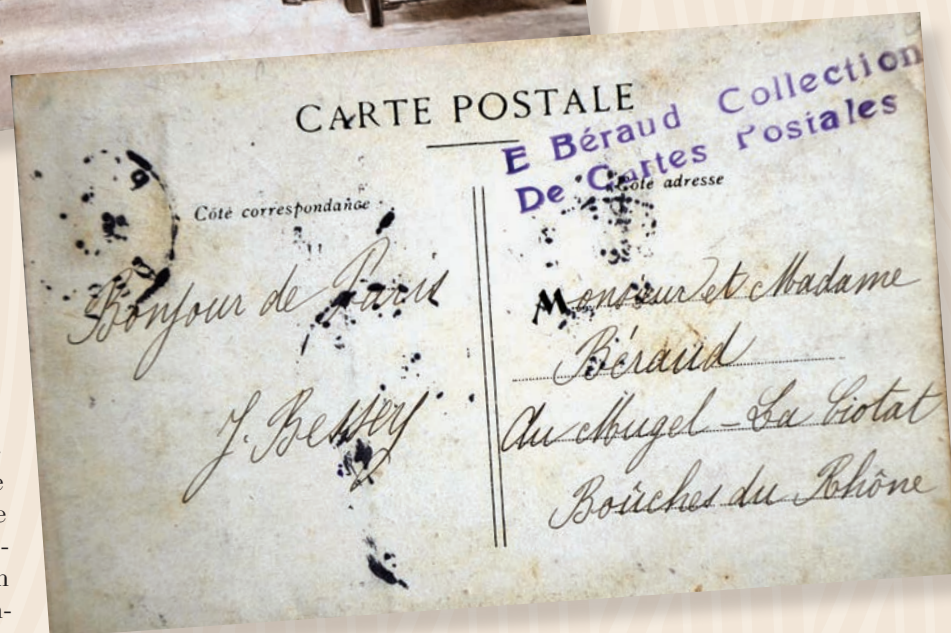 CARTE POSTALE
E Béraud Collection
De Cartes Postales
Côté correspondance
Côté adresse
Bonjour de Paris
J. Bessey
Monsieur et Madame
Béraud
Au Mugel - La Ciotat
Bouches du Rhône